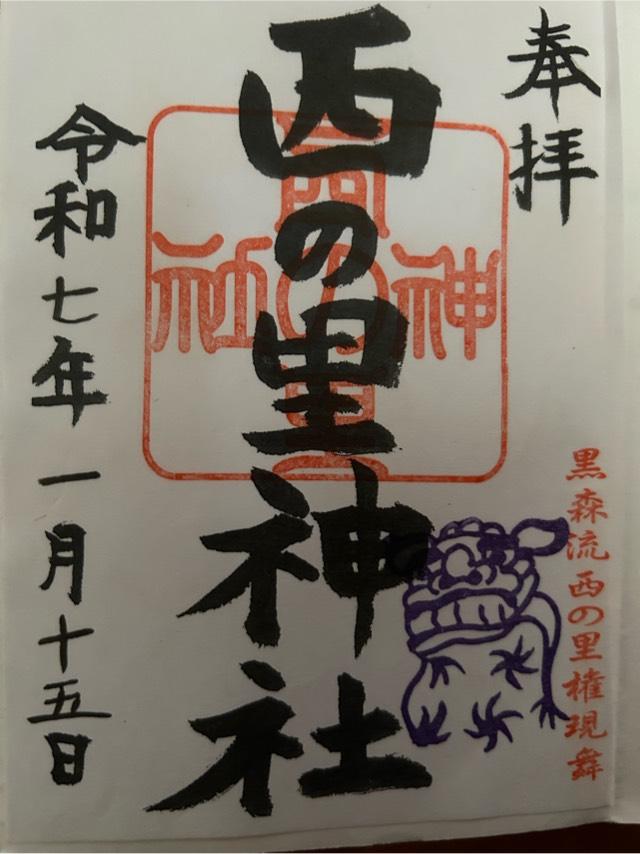 奉拝
西の里神社
西の里
神社
黒森流西の里権現舞
令和七年一月十五日